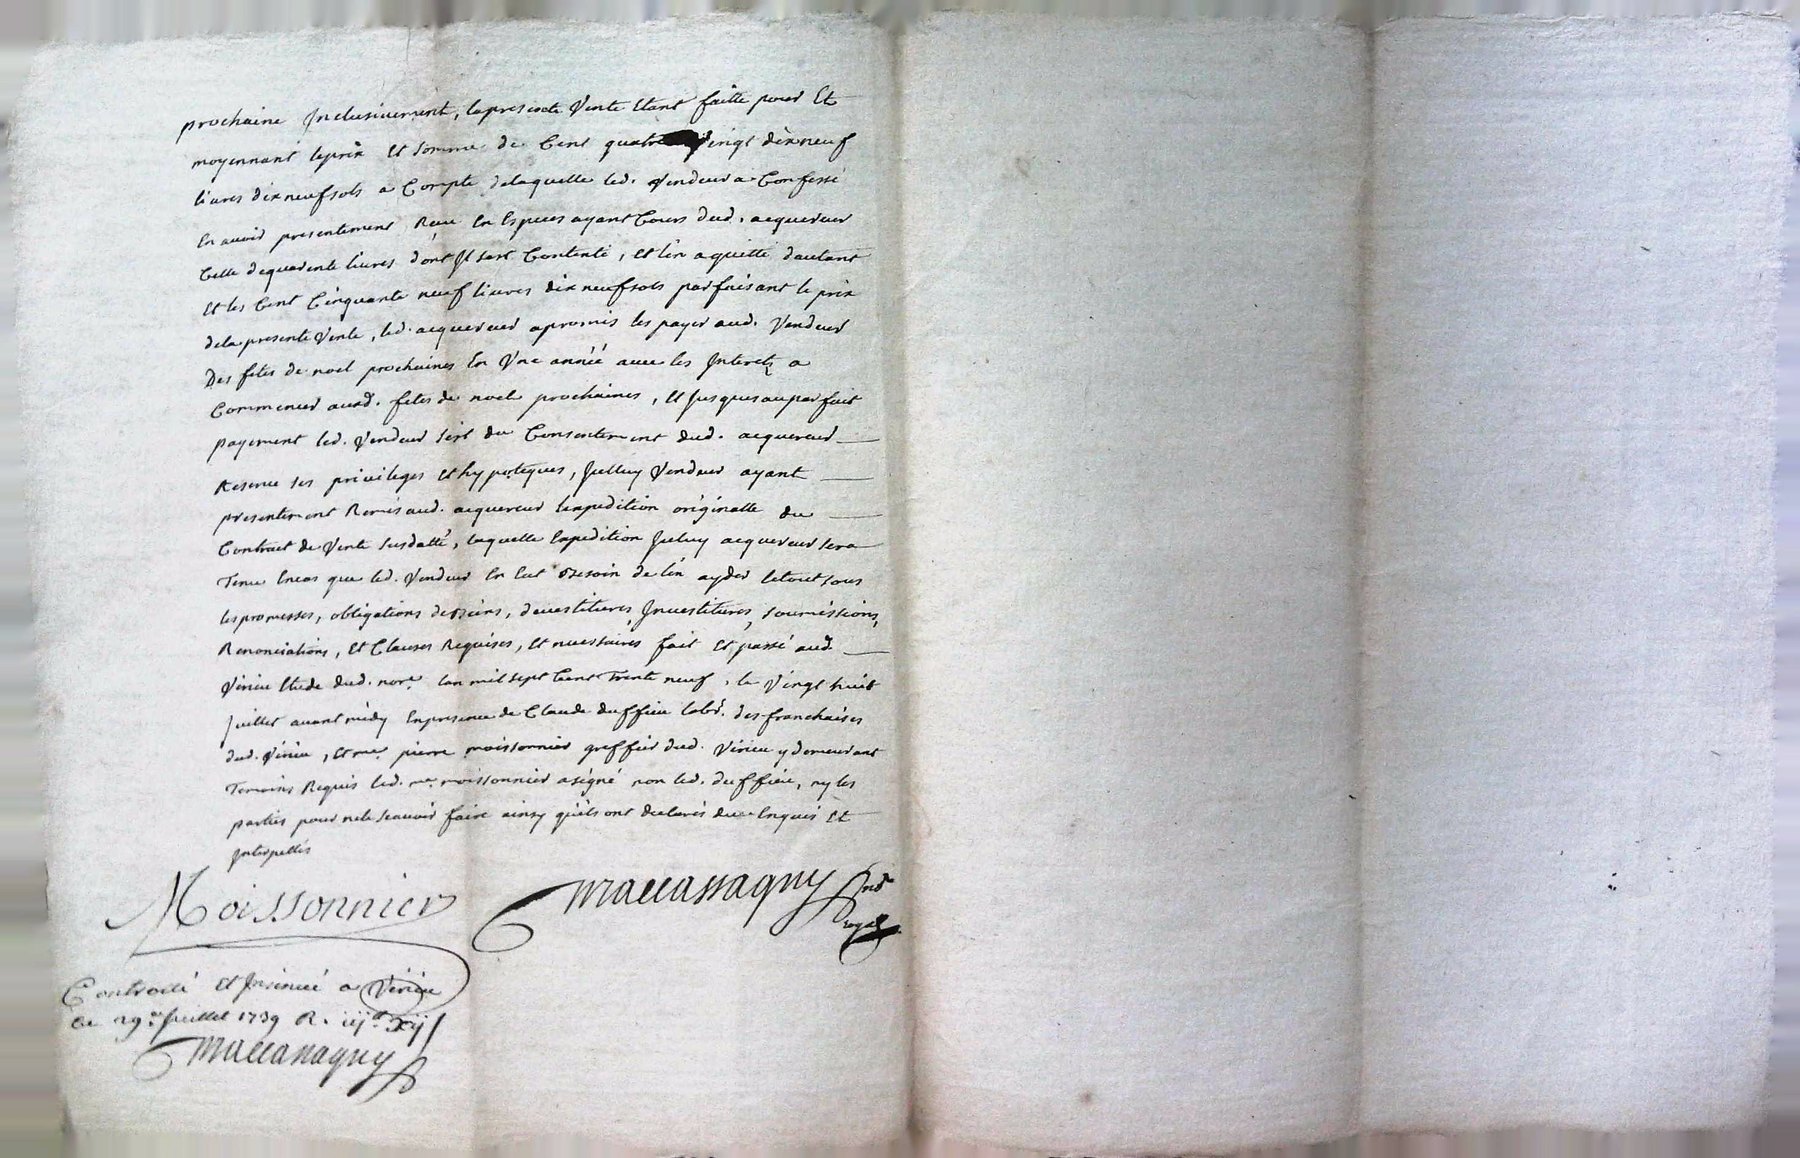 prochaine Inclusivement, lapresente Vente Etant faitte pour Et
moyennant leprix Et somme de Cent quatre vingt dixneuf
livres dixneufsols a Compte delaquelle led. Vendeur a Confessé
En avoir presentement Receu En Especes ayant Cours dud. acquereur
Celle dequarente livres dont Il sest Contenté, Et len a quitté dautant
Et les Cent Cinquante neuf livres dix neufsols parfaisant le prix
dela presente Vente, led. acquereur apromis les payer aud. Vendeur
Des fetes de noel prochaines En Une année avec les Interets a
Commencer ausd. fetes de noel prochaines, Et Jusques auparfait
payement led. Vendeur sest du Consentement dud. acquereur
Reservé ses privileges Et hypoteques, Icelluy Vendeur ayant
presentement Remis aud. acquereur lexpedition originalle du
Contract de Vente susdatté, laquelle Expedition Iceluy acquereur sera
Tenu Encas que led. Vendeur En Eut Besoin de len ayder letout sous
les promesses, obligations desbiens, devestitures Investitures, soumissions,
Renonciations, Et Clauses Requises, Et necessaires fait Et passé aud.
Virieu Etude dud. nore. Lan mil sept Cent Trente neuf, le Vingt huit
Juillet avant midy Enpresence de Claude duffieu labr. des franchises
dud. Virieu, Et me. pierre moissonnier greffier dud. Virieu y demeurant
Temoins Requis led. me. moissonnier asigné non led. duffieu, ny les
parties pour nele scavoir faire ainsy quils ont declarés dece Enquis Et
Interpellés
Moissonnier
Maccassagny
royal
Controllé Et Insinué a Virieu
Le 29e. Juillet 1739 R.
Maccassagny